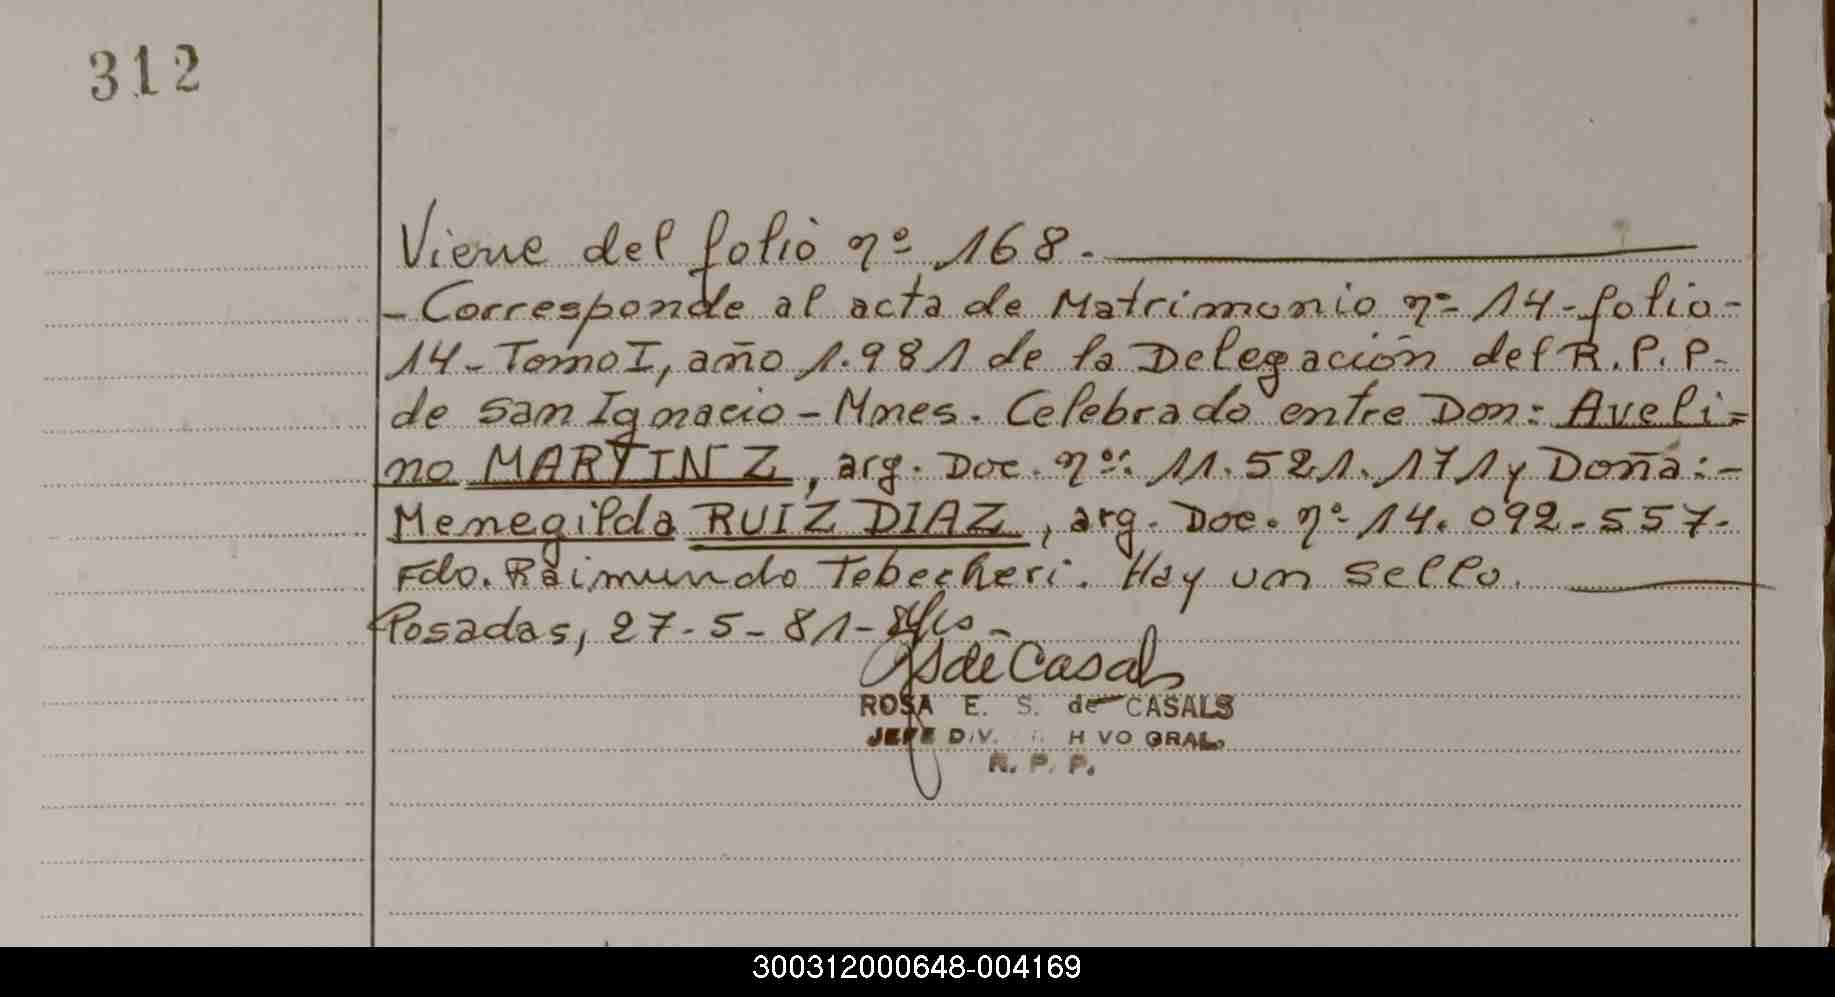 312
Viene del folio nº 168.
- Corresponde al acta de Matrimonio nº 14 - folio -
14 - Tomo I, año 1.981 de la Delegación del R.P.P.
de San Ignacio - Mnes. Celebrado entre Don: Aveli=
no MARTINZ, arg. Doc. nº: 11.521.171 y Doña: -
Menegilda RUIZ DIAZ, arg. Doc. nº 14.092.557.
Fdo. Raimundo Tebecheri. Hay un sello.
Posadas, 27-5-81-
de Casals
ROSA E. S. de CASALS
JEFE DIV. GRAL.
R. P. P.
300312000648-004169